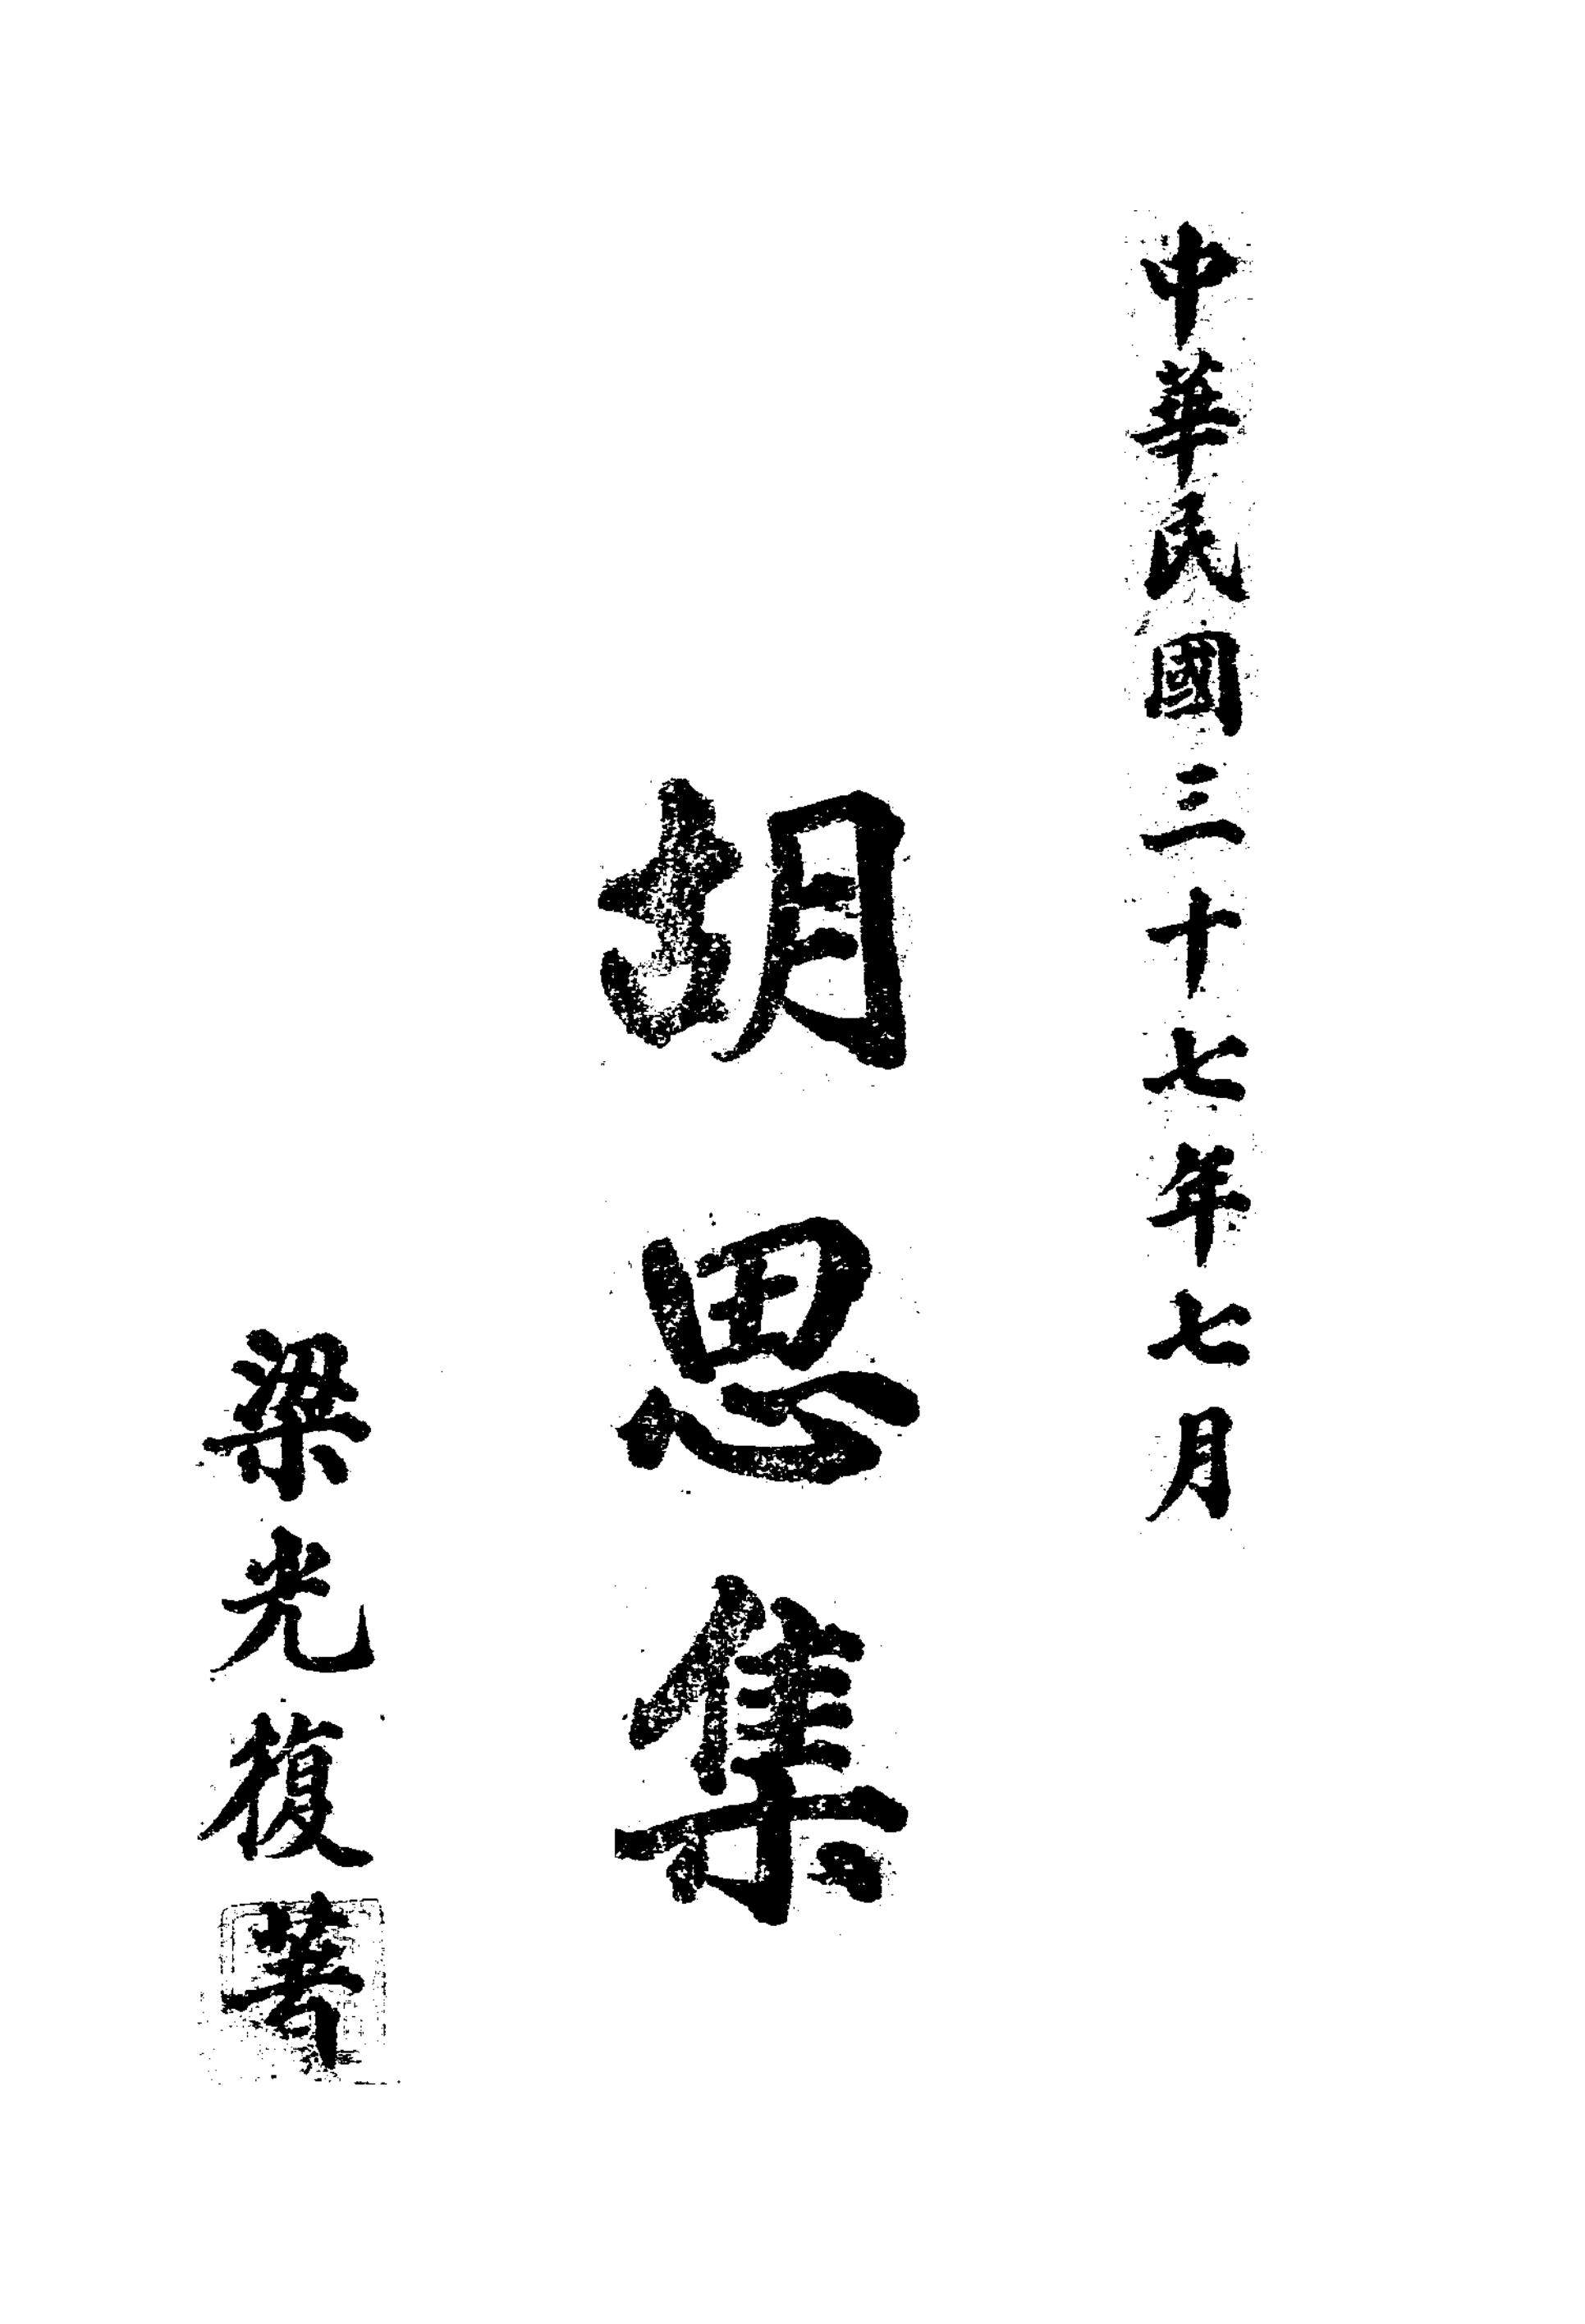 中華民國三十七年七月
胡思集
梁光復著